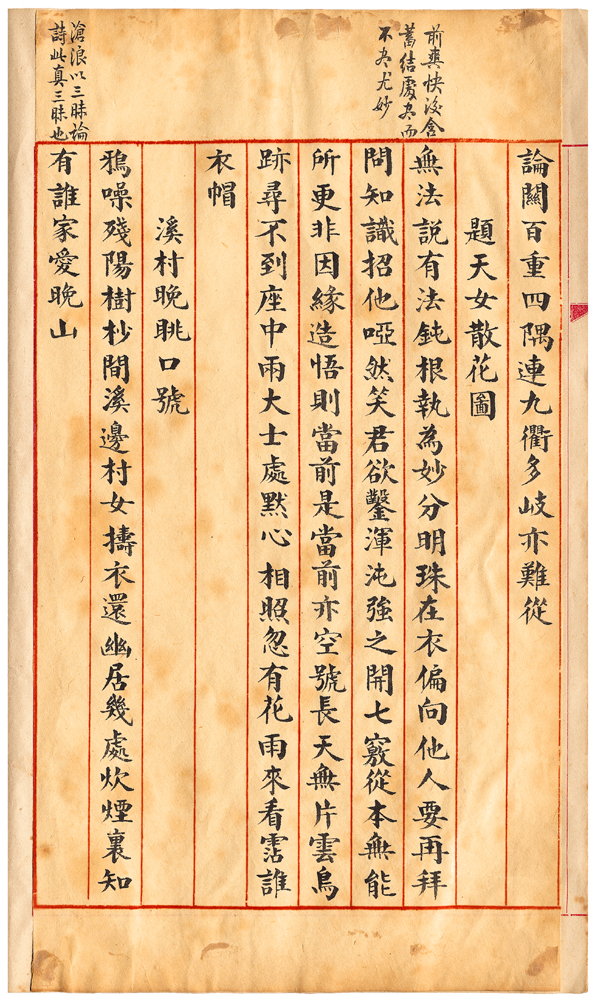 前爽快後含
蓄結處尽而
不尽尤妙
滄浪以三昧論
詩此真三昧也
論關百重四隅連九衢多岐亦難從
題天女散花圖
無法説有法鈍根執為妙分明珠在衣偏向他人要再拜
問知識招他啞然笑君欲鑿渾沌強之開七竅從本無能
所更非因緣造悟則當前是當前亦空號長天無片雲鳥
跡尋不到座中兩大士處默心相照忽有花雨來看霑誰
衣帽
溪村晚眺口號
鴉噪殘陽樹杪間溪邊村女擣衣還幽居幾處炊煙裏知
有誰家愛晚山